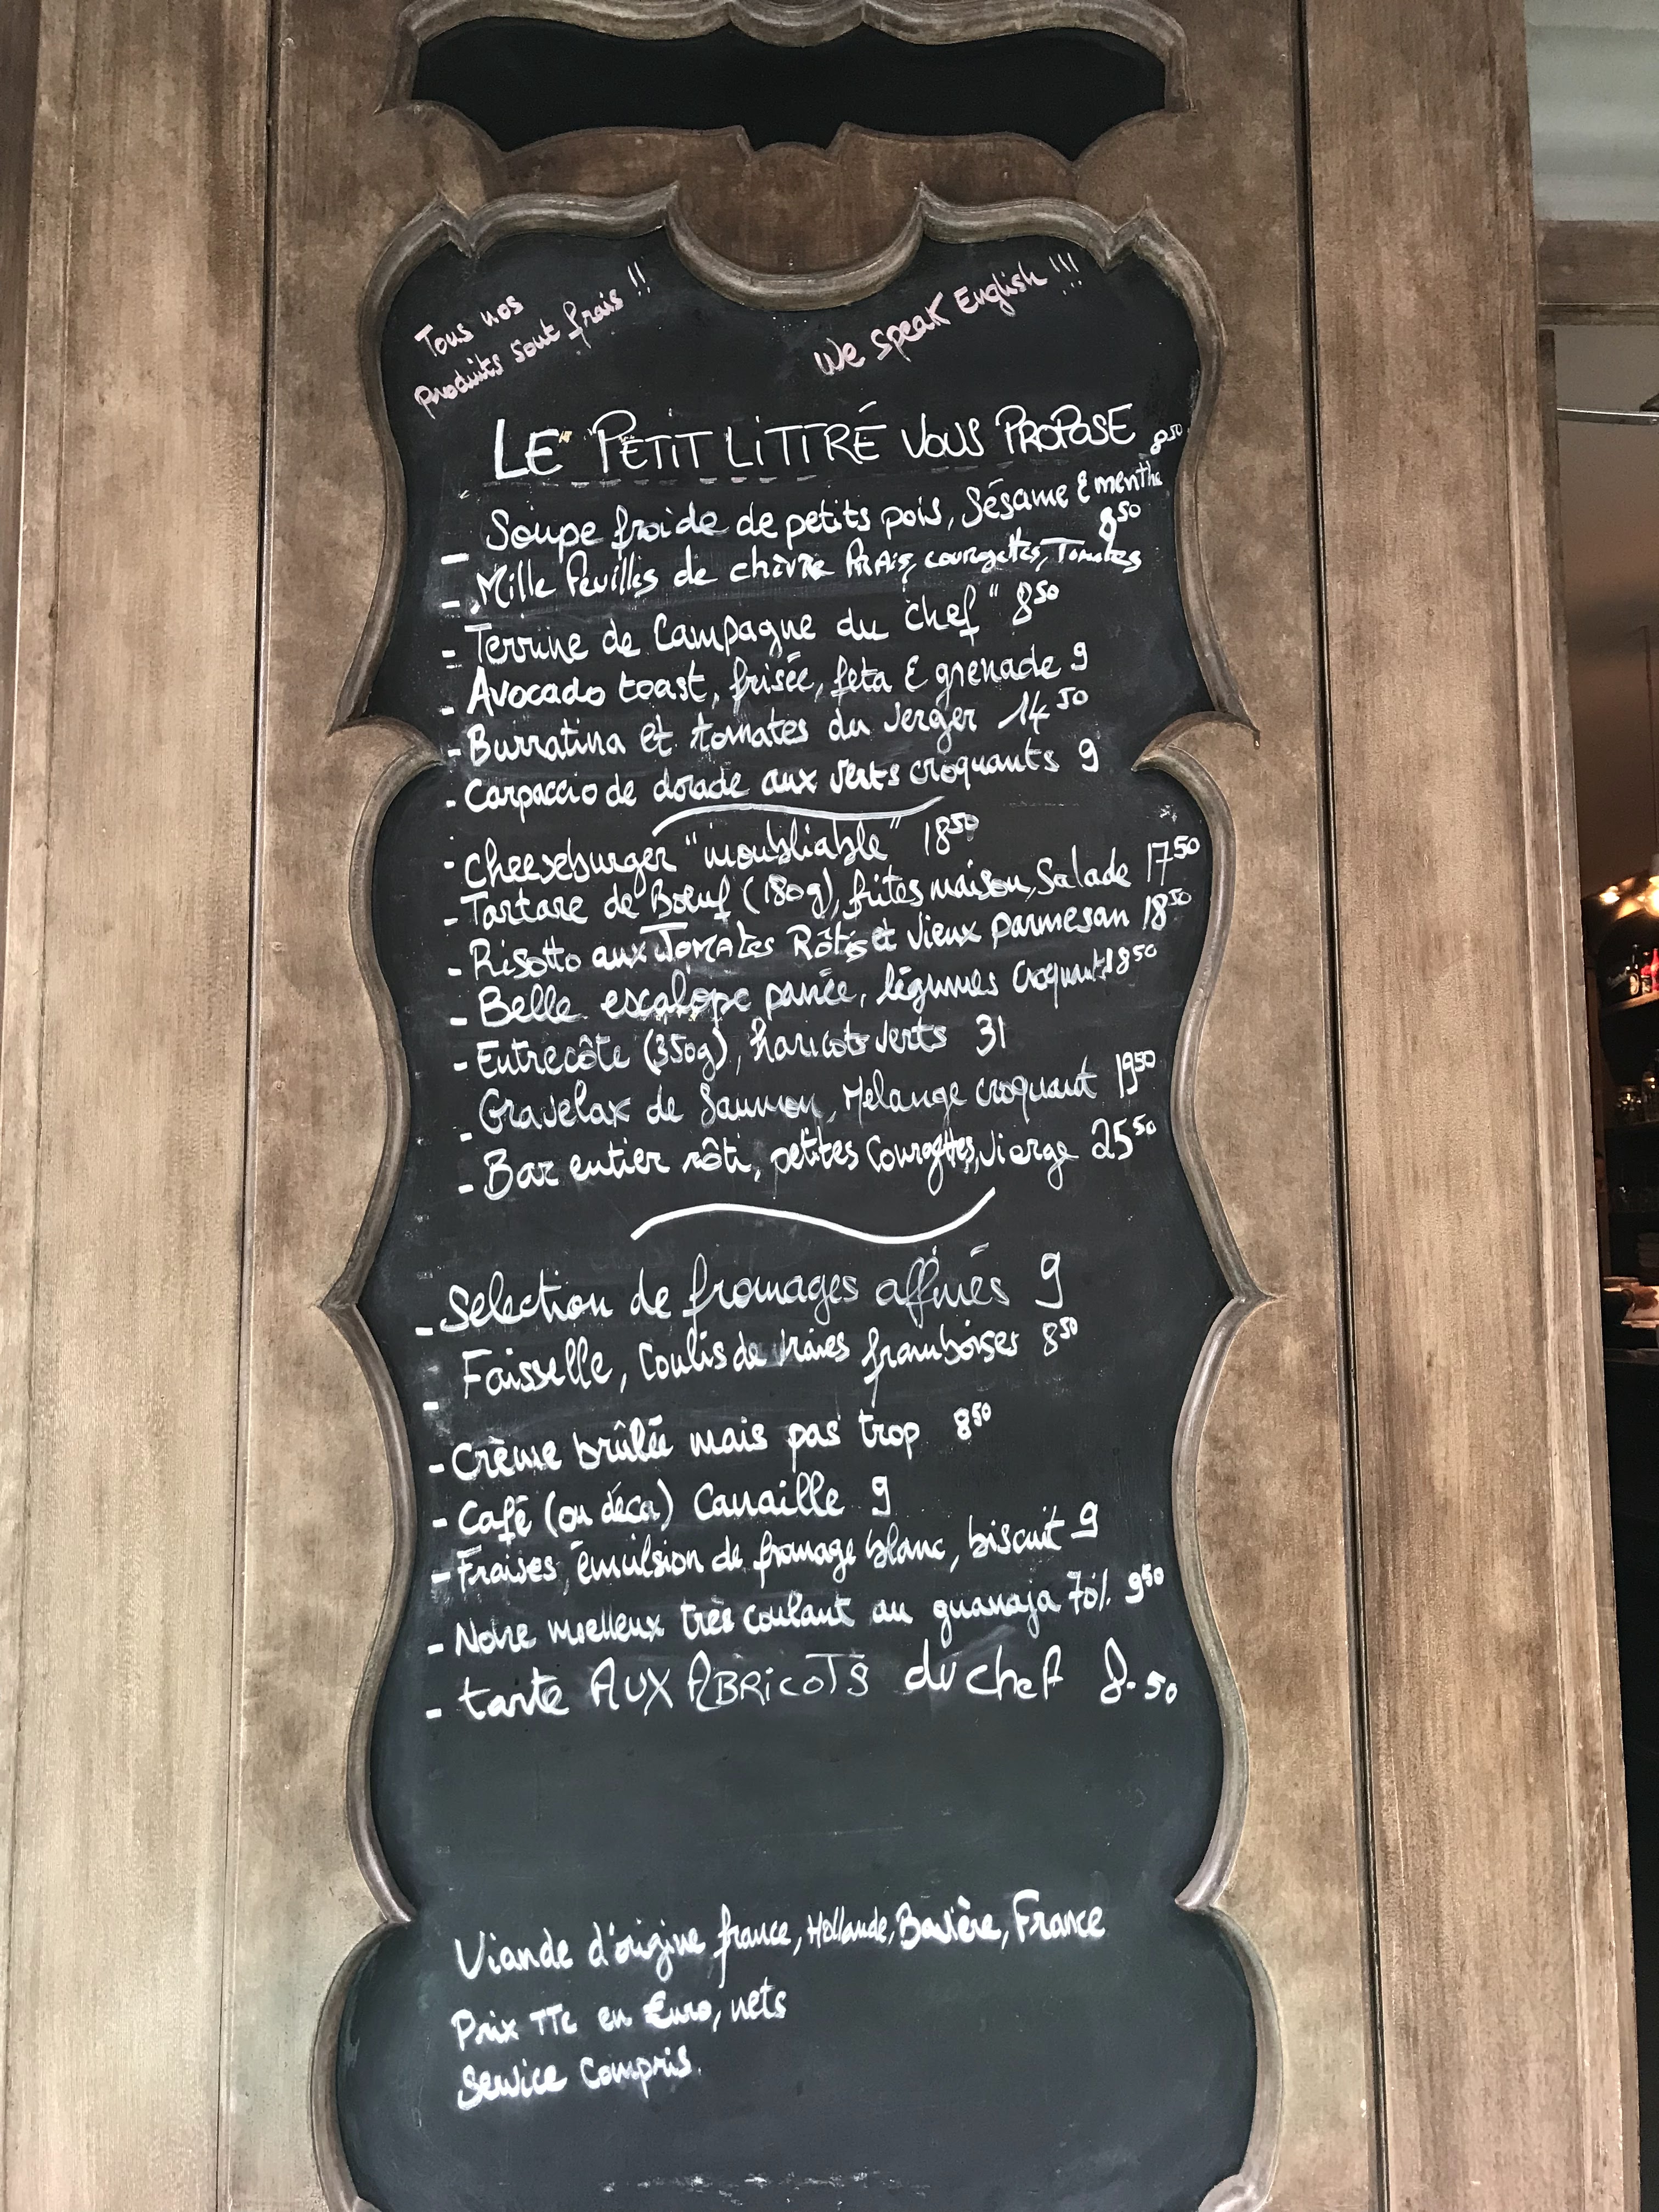 Tous nos
produits sont frais !!
We speak English !!!
LE PETIT LITTRÉ VOUS PROPOSE
- Soupe froide de petits pois, Sésame & menthe 8 50
- Mille feuilles de chèvre frais, courgettes, Tomates 8 50
- Terrine de Campagne du chef" 8 50
- Avocado toast, frisée, feta & grenade 9
- Burratina et tomates du verger 14 50
- Carpaccio de dorade aux verts croquants 9
- Cheeseburger "inoubliable" 18 50
- Tartare de Bœuf (180g), frites maison, Salade 17 50
- Risotto aux Tomates Rôties et vieux parmesan 18 50
- Belle escalope panée, légumes croquants 18 50
- Entrecôte (350g), haricots verts 31
- Gravelax de Saumon, Mélange croquant 19 50
- Bar entier rôti, petites Courgettes, vierge 25 50
- Selection de fromages affinés 9
- Faisselle, Coulis de vraies framboises 8 50
- Crème brûlée mais pas trop 8 50
- Café (ou déca) Canaille 9
- Fraises, émulsion de fromage blanc, biscuit 9
- Notre moelleux très coulant au guanaja 70% 9 50
- tarte AUX ABRICOTS du chef 8.50
Viande d'origine france, Hollande, Bavière, France
Prix TTC en €uro, nets
Service Compris.